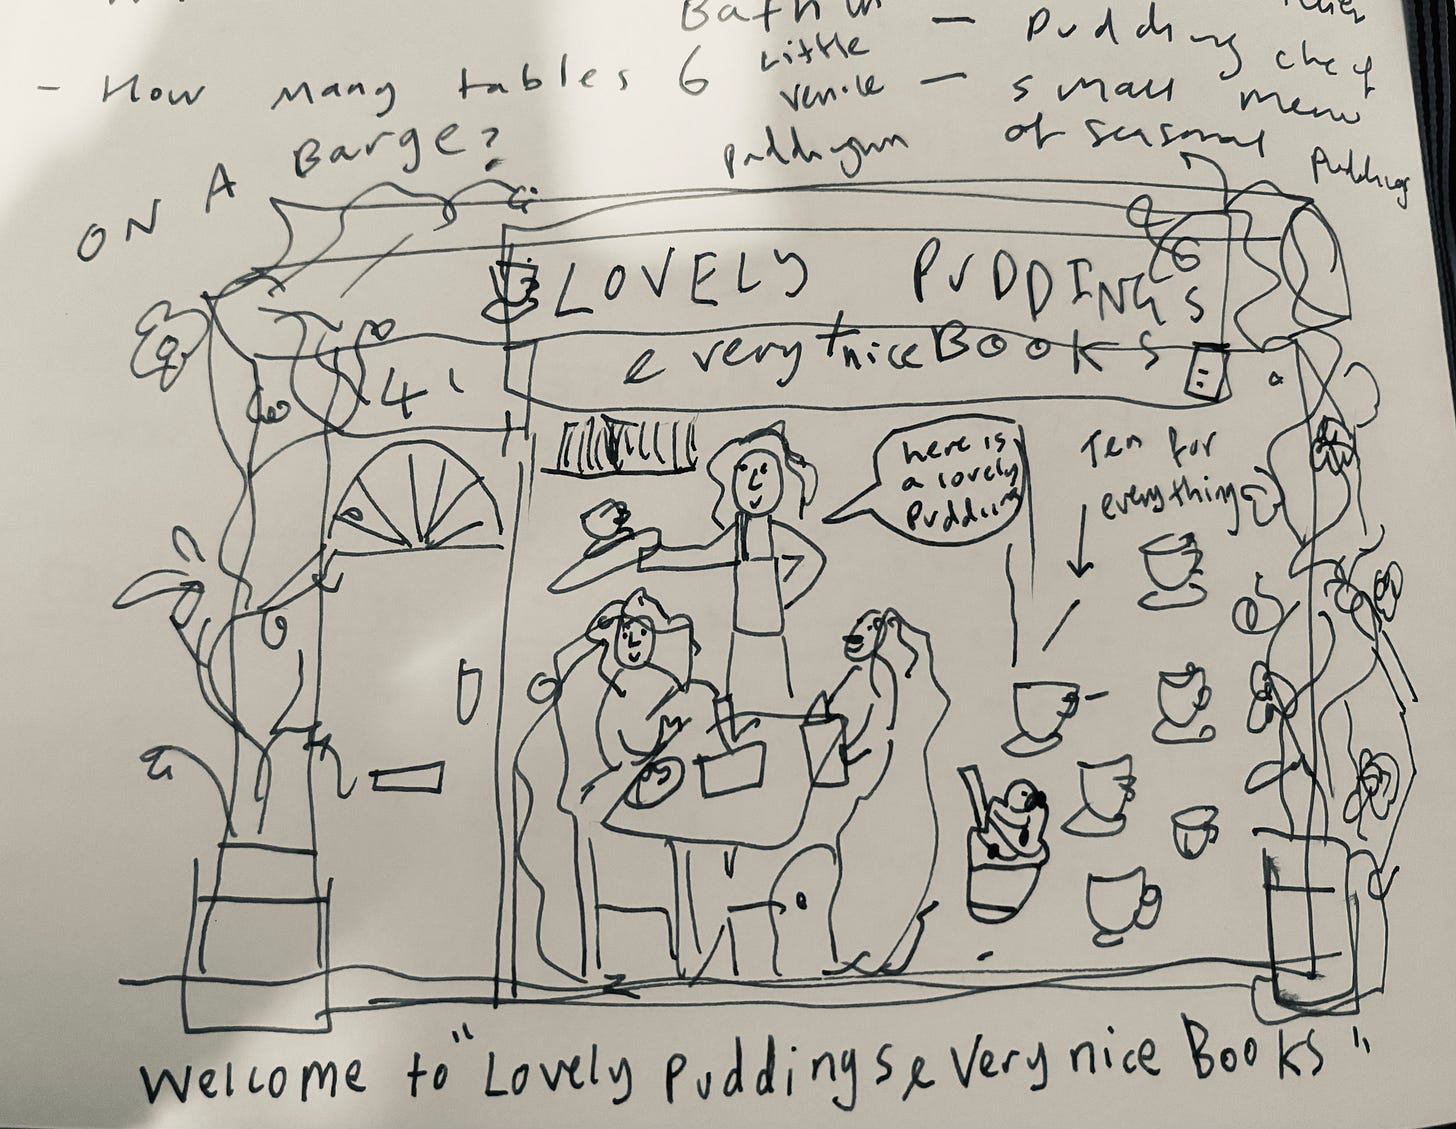 Bath
- How many tables 6
Little
Venice
- Pudding chef
- small menu
of seasonal
Puddings
ON A Barge?
LOVELY PUDDINGS
e very nice BOOKS
41
here is
a lovely
Pudding
Ten for
everything
Welcome to "Lovely puddings e Very nice Books"